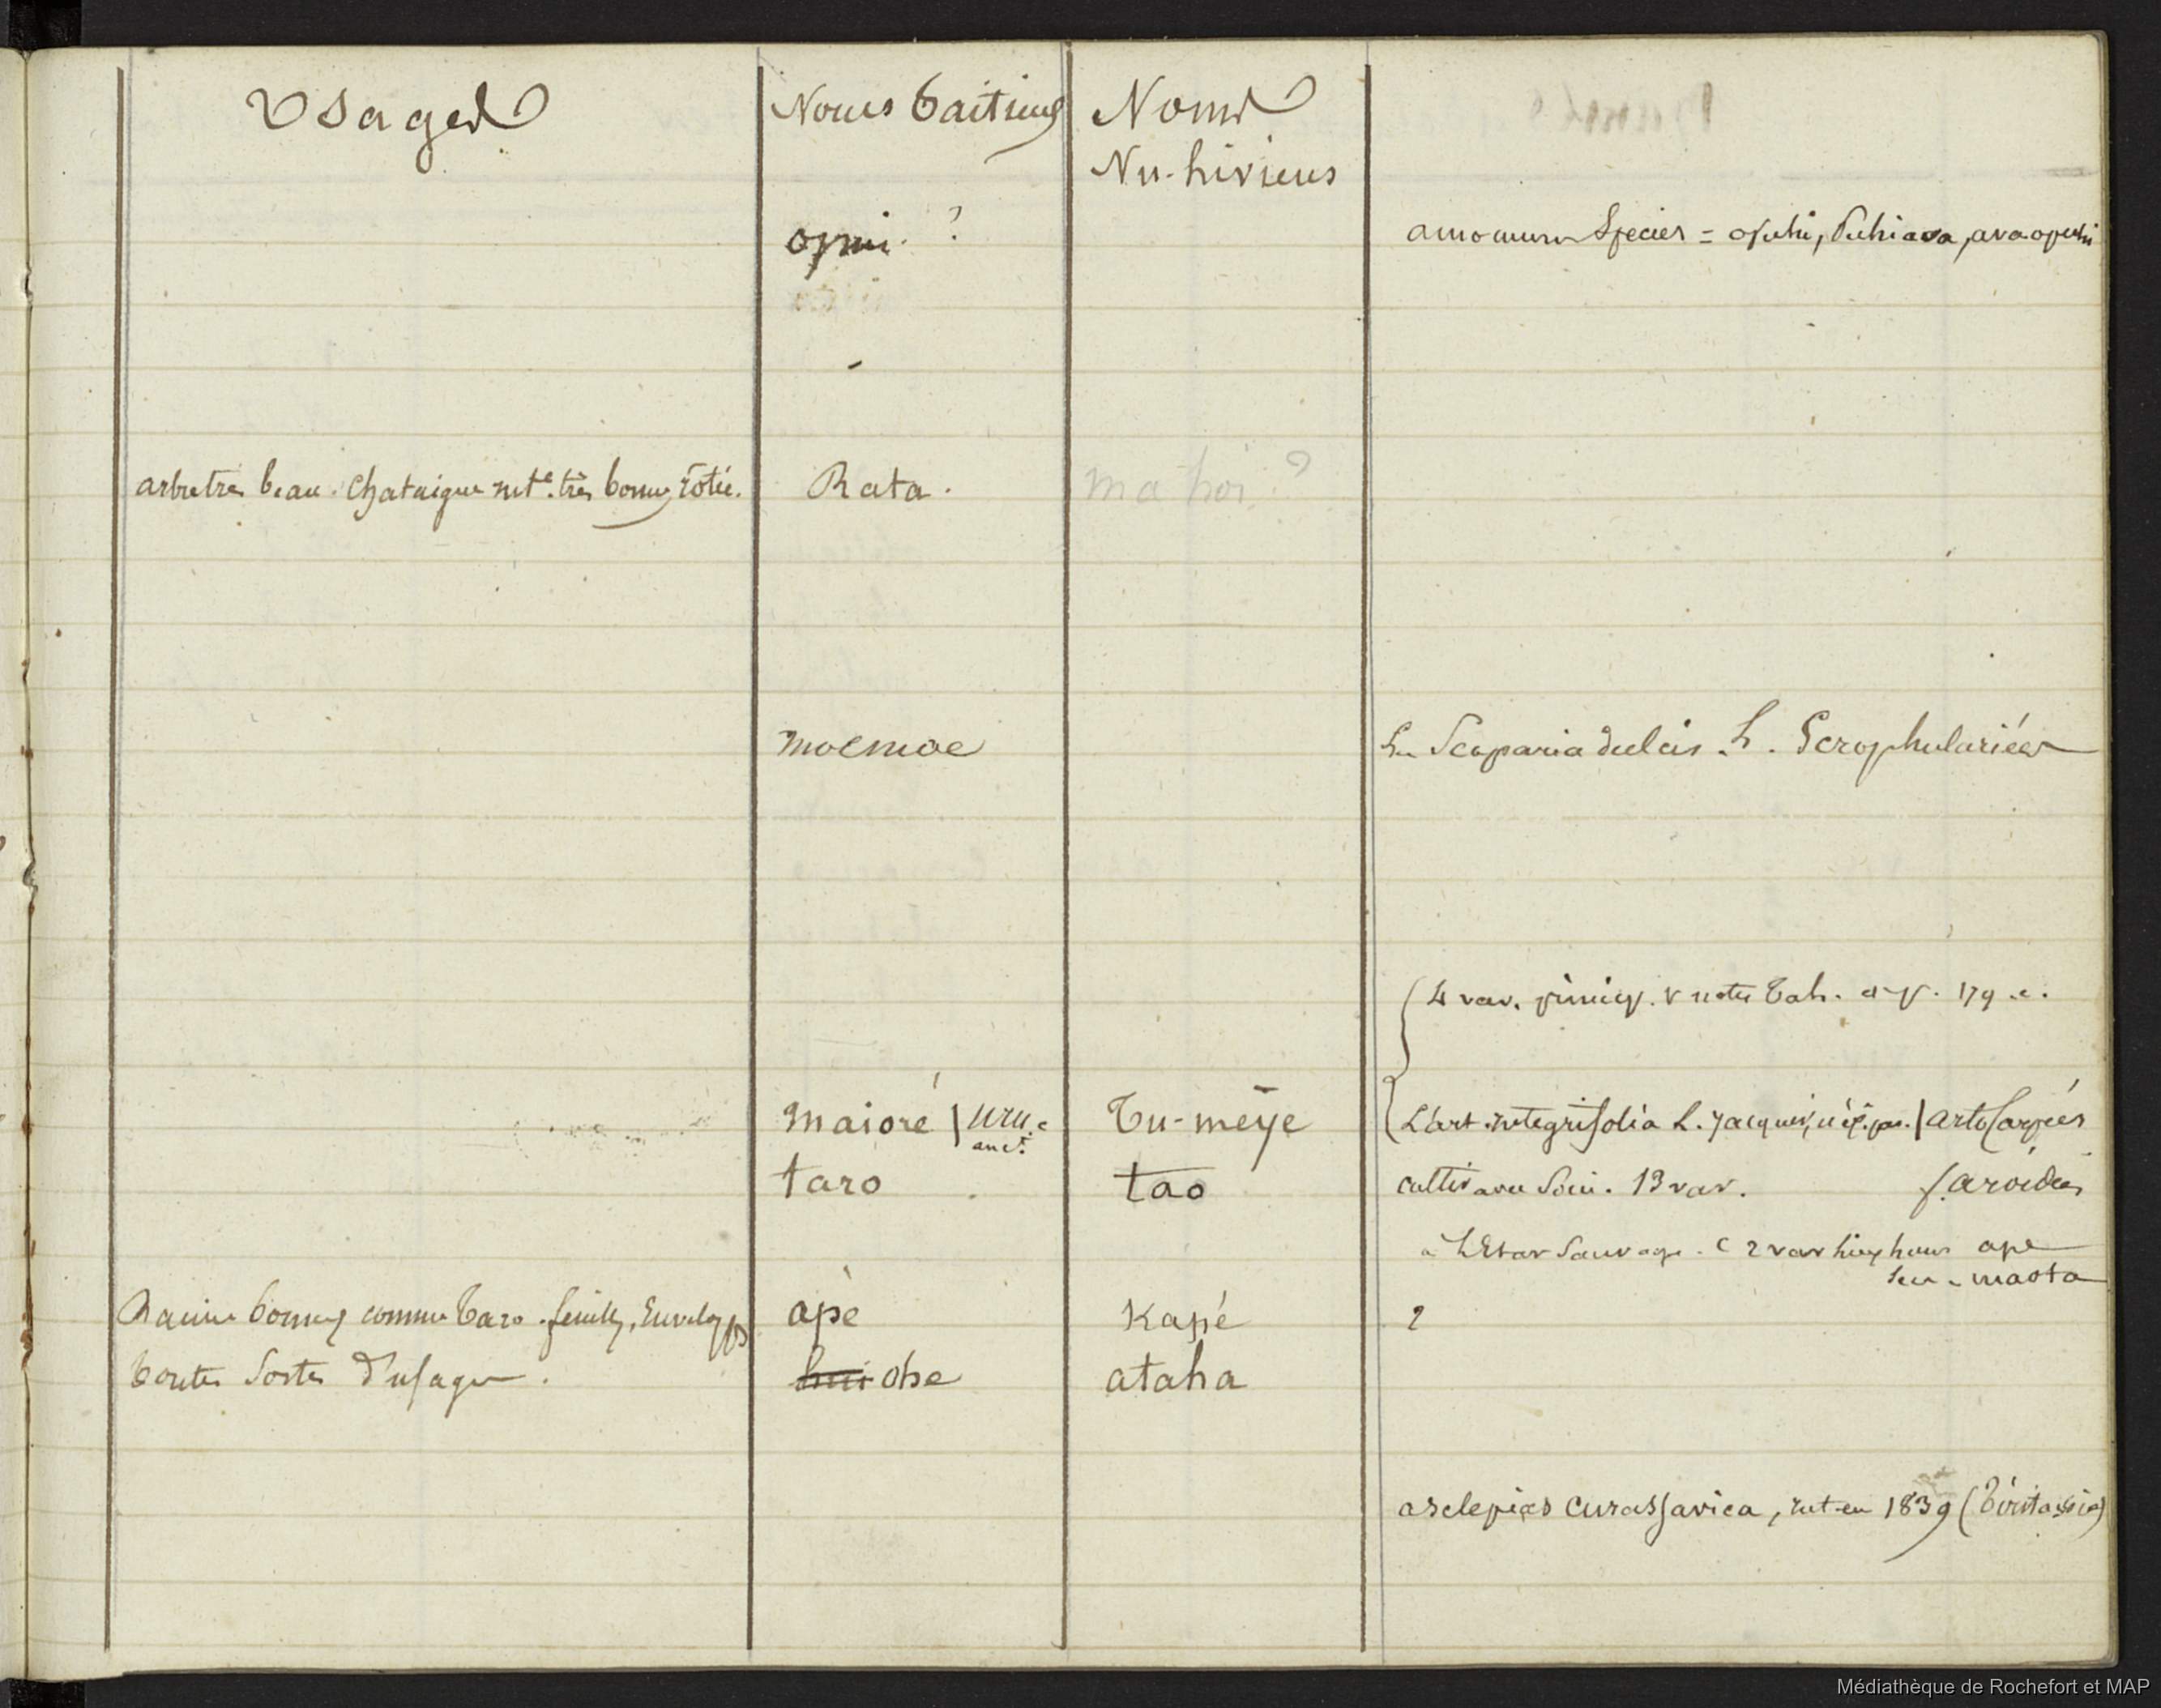 Usages
Noms taitiens
Noms
Nu-hiviens
opui ?
amomum Species = opuhi, Puhiava, avaopuhi
arbre très beau. Chataigne très bonne rotie.
Rata.
ma hoi ?
moemoe
Scoparia dulcis. L. Scrophulariées
4 var. princip. V notes Tah. 179
maioré | uru
anct.
Tu-meije
L'art. integrifolia L. Jacquier, | artocarpées
taro
tao
cultiv avec Soin. 13 var. f. aroidées
à L'Etat Sauvage. 2 var ape
maota
Racine bonne comme Taro. feuilles, Envelopp
apè
Kapé
?
toutes Sortes d'usages.
hui ohe
ataha
asclepias curassavica, int. en 1839
Médiathèque de Rochefort et MAP